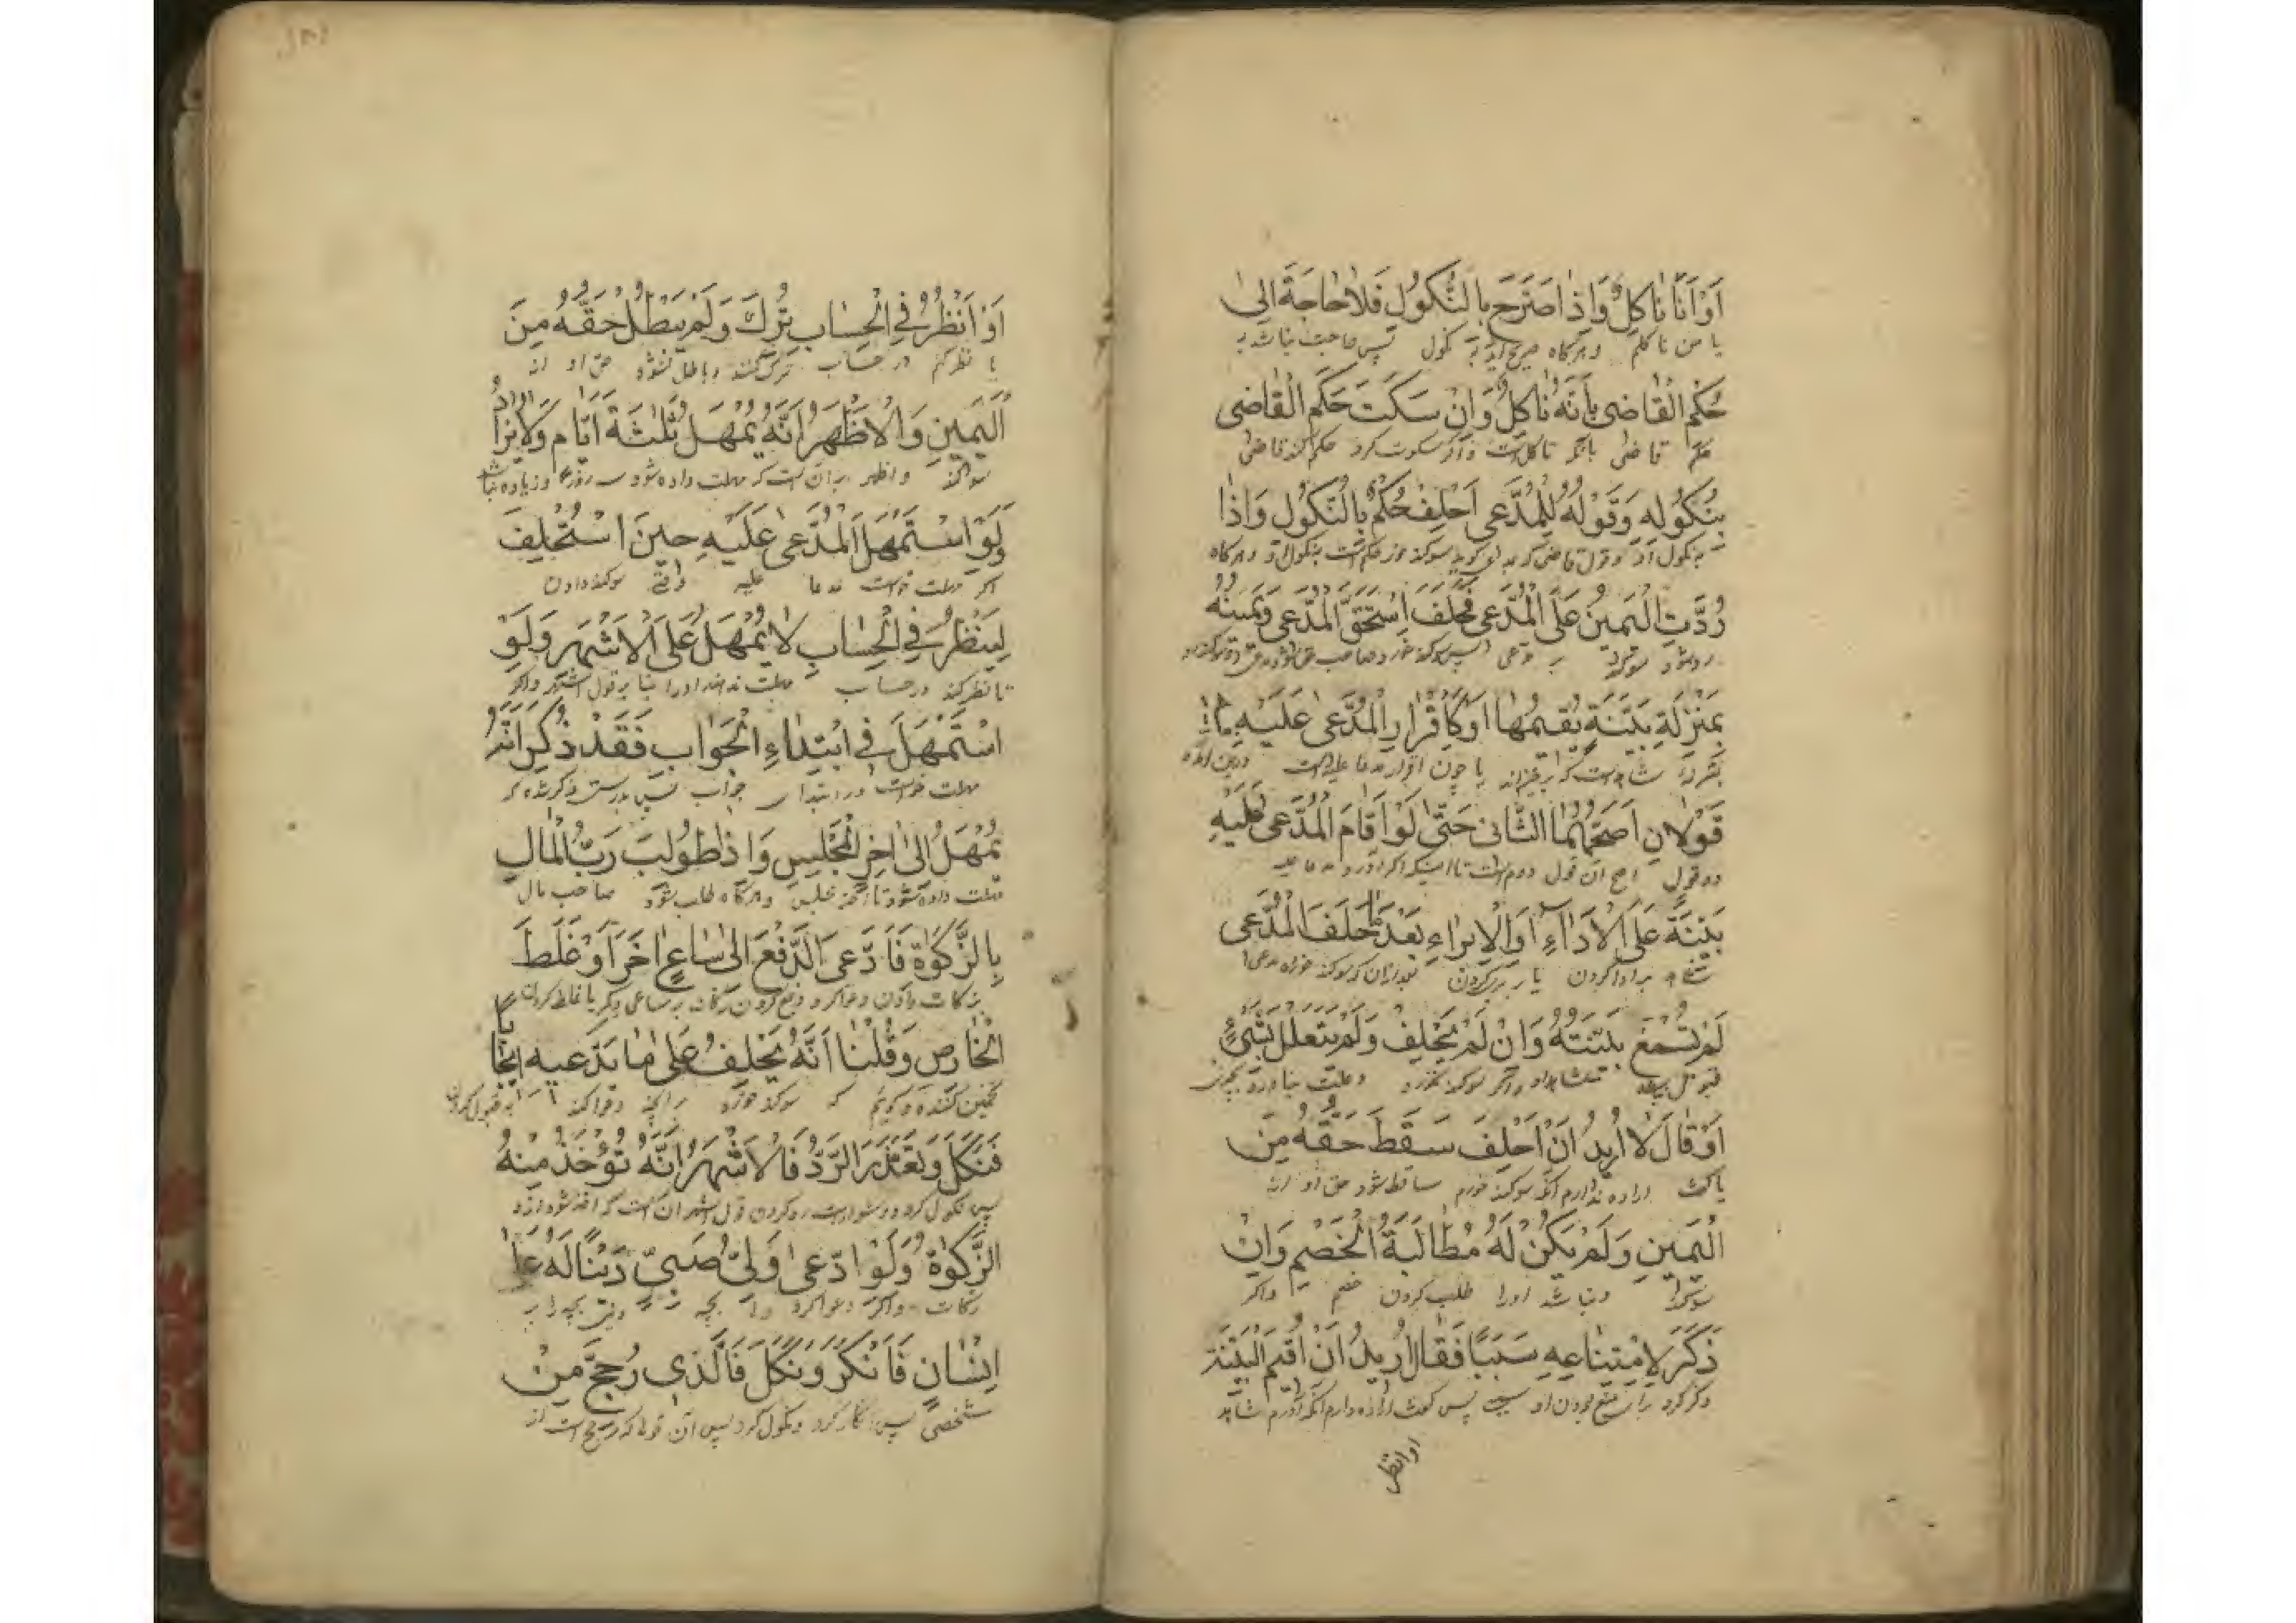 اَوْ اَنَا نَاكِلٌ وَاِذَا صَرَّحَ بِالنُّكُولِ فَلَا حَاجَةَ اِلٰى
يا من ناكلم وهركاه صريح نكول پس حاجت نباشد به
حُكْمِ الْقَاضِى بِاَنَّهُ نَاكِلٌ وَاِنْ سَكَتَ حَكَمَ الْقَاضِى
حكم قاضى بانكه ناكل است واكر سكوت كرد حكم كند قاضى
بِنُكُولِهِ وَقَوْلُهُ لِلْمُدَّعِى اَحْلِفُ حُكْمٌ بِالنُّكُولِ وَاِذَا
بنكول او وقول قاضى سوكند خور حكم است بنكول او وهركاه
رُدَّتِ الْيَمِينُ عَلَى الْمُدَّعِى فَحَلَفَ اسْتَحَقَّ الْمُدَّعِى وَيَمِينُهُ
رد شود سوكند بر مدعى پس سوكند خورد صاحب
بِمَنْزِلَةِ بَيِّنَةٍ يُقِيمُهَا اَوْ كَاِقْرَارِ الْمُدَّعٰى عَلَيْهِ
شاهد است يا چون اقرار مدعا عليه است
قَوْلَانِ اَصَحُّهُمَا الثَّانِى حَتّٰى لَوْ اَقَامَ الْمُدَّعٰى عَلَيْهِ
دو قول اصح ان قول دوم است تا اينكه اكر اورد مدعا عليه
بَيِّنَةً عَلَى الْاَدَاءِ اَوِ الْاِبْرَاءِ بَعْدَ مَا حَلَفَ الْمُدَّعِى
بر ادا كردن يا برى كردن بعد ازان كه سوكند خورد مدعى
لَمْ تُسْمَعْ بَيِّنَتُهُ وَاِنْ لَمْ يَحْلِفْ وَلَمْ يَتَعَلَّلْ بِشَيْءٍ
قبول واكر سوكند نخورد وعلت نياورد بچيزى
اَوْ قَالَ لَا اُرِيدُ اَنْ اَحْلِفَ سَقَطَ حَقُّهُ مِنَ
يا كفت اراده ندارم انكه سوكند خورم ساقط شود حق او از
الْيَمِينِ وَلَمْ يَكُنْ لَهُ مُطَالَبَةُ الْخَصْمِ وَاِنْ
سوكند ونباشد اورا طلب كردن خصم واكر
ذَكَرَ لِامْتِنَاعِهِ سَبَبًا فَقَالَ اُرِيدُ اَنْ اُقِيمَ الْبَيِّنَةَ
ذكر كرد براى منع بودن او سبب پس كفت اراده دارم انكه اورم شاهد
او انظر
اَوْ اَنْظُرُ فِى الْحِسَابِ تُرِكَ وَلَمْ يَبْطُلْ حَقُّهُ مِنَ
يا نظر كنم در حساب ترك كنند وباطل نشود حق او از
الْيَمِينِ وَالْاَظْهَرُ اَنَّهُ يُمْهَلُ ثَلٰثَةَ اَيَّامٍ وَلَا يُزَادُ
سوكند واظهر بر ان است كه مهلت داده شود سه روز وزياده نباشد
وَلَوِ اسْتَمْهَلَ الْمُدَّعٰى عَلَيْهِ حِينَ اسْتُحْلِفَ
اكر مهلت خواست مدعا عليه وقت سوكند دادن
لِيَنْظُرَ فِى الْحِسَابِ لَا يُمْهَلُ عَلَى الْاَشْهَرِ وَلَوِ
تا نظر كند در حساب مهلت ندهند اورا بنا بر قول اشهر واكر
اسْتَمْهَلَ فِى ابْتِدَاءِ الْجَوَابِ فَقَدْ ذُكِرَ اَنَّهُ
مهلت خواست در ابتداى جواب پس بدرستى ذكر شده كه
يُمْهَلُ اِلٰى اٰخِرِ الْمَجْلِسِ وَاِذَا طُولِبَ رَبُّ الْمَالِ
مهلت داده شود تا اخر مجلس وهركاه طلب شود صاحب مال
بِالزَّكٰوةِ فَادَّعَى الدَّفْعَ اِلٰى سَاعٍ اٰخَرَ اَوْ غَلَطَ
بزكات دادن ودعوا كرد دفع كردن زكات بر ساعى ديكر يا غلط كردن
الْخَارِصِ وَقُلْنَا اَنَّهُ يَحْلِفُ عَلٰى مَا يَدَّعِيهِ اِيجَابًا
تخمين كننده وكويم كه سوكند خورد برانچه دعوا كند
فَنَكَلَ وَتَعَذَّرَ الرَّدُّ فَالْاَشْهَرُ اَنَّهُ تُؤْخَذُ مِنْهُ
پس نكول كرد ودشوار است رد كردن قول اشهر ان است كه اخذ شود ازو
الزَّكٰوةُ وَلَوِ ادَّعٰى وَلِىُّ صَبِىٍّ دَيْنًا لَهُ عَلٰى
زكات واكر دعوا كرد بچه
اِنْسَانٍ فَاَنْكَرَ وَنَكَلَ فَالَّذِى رُجِّحَ مِنْ
شخصى پس انكار كرد ونكول كرد پس آن قول كه رجح است از